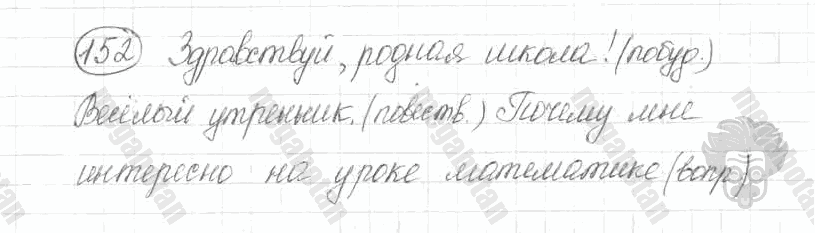 152 Здравствуй, родная школа! (побуд.)
Весёлый утренник. (повеств.) Почему мне
интересно на уроке математике (вопр)